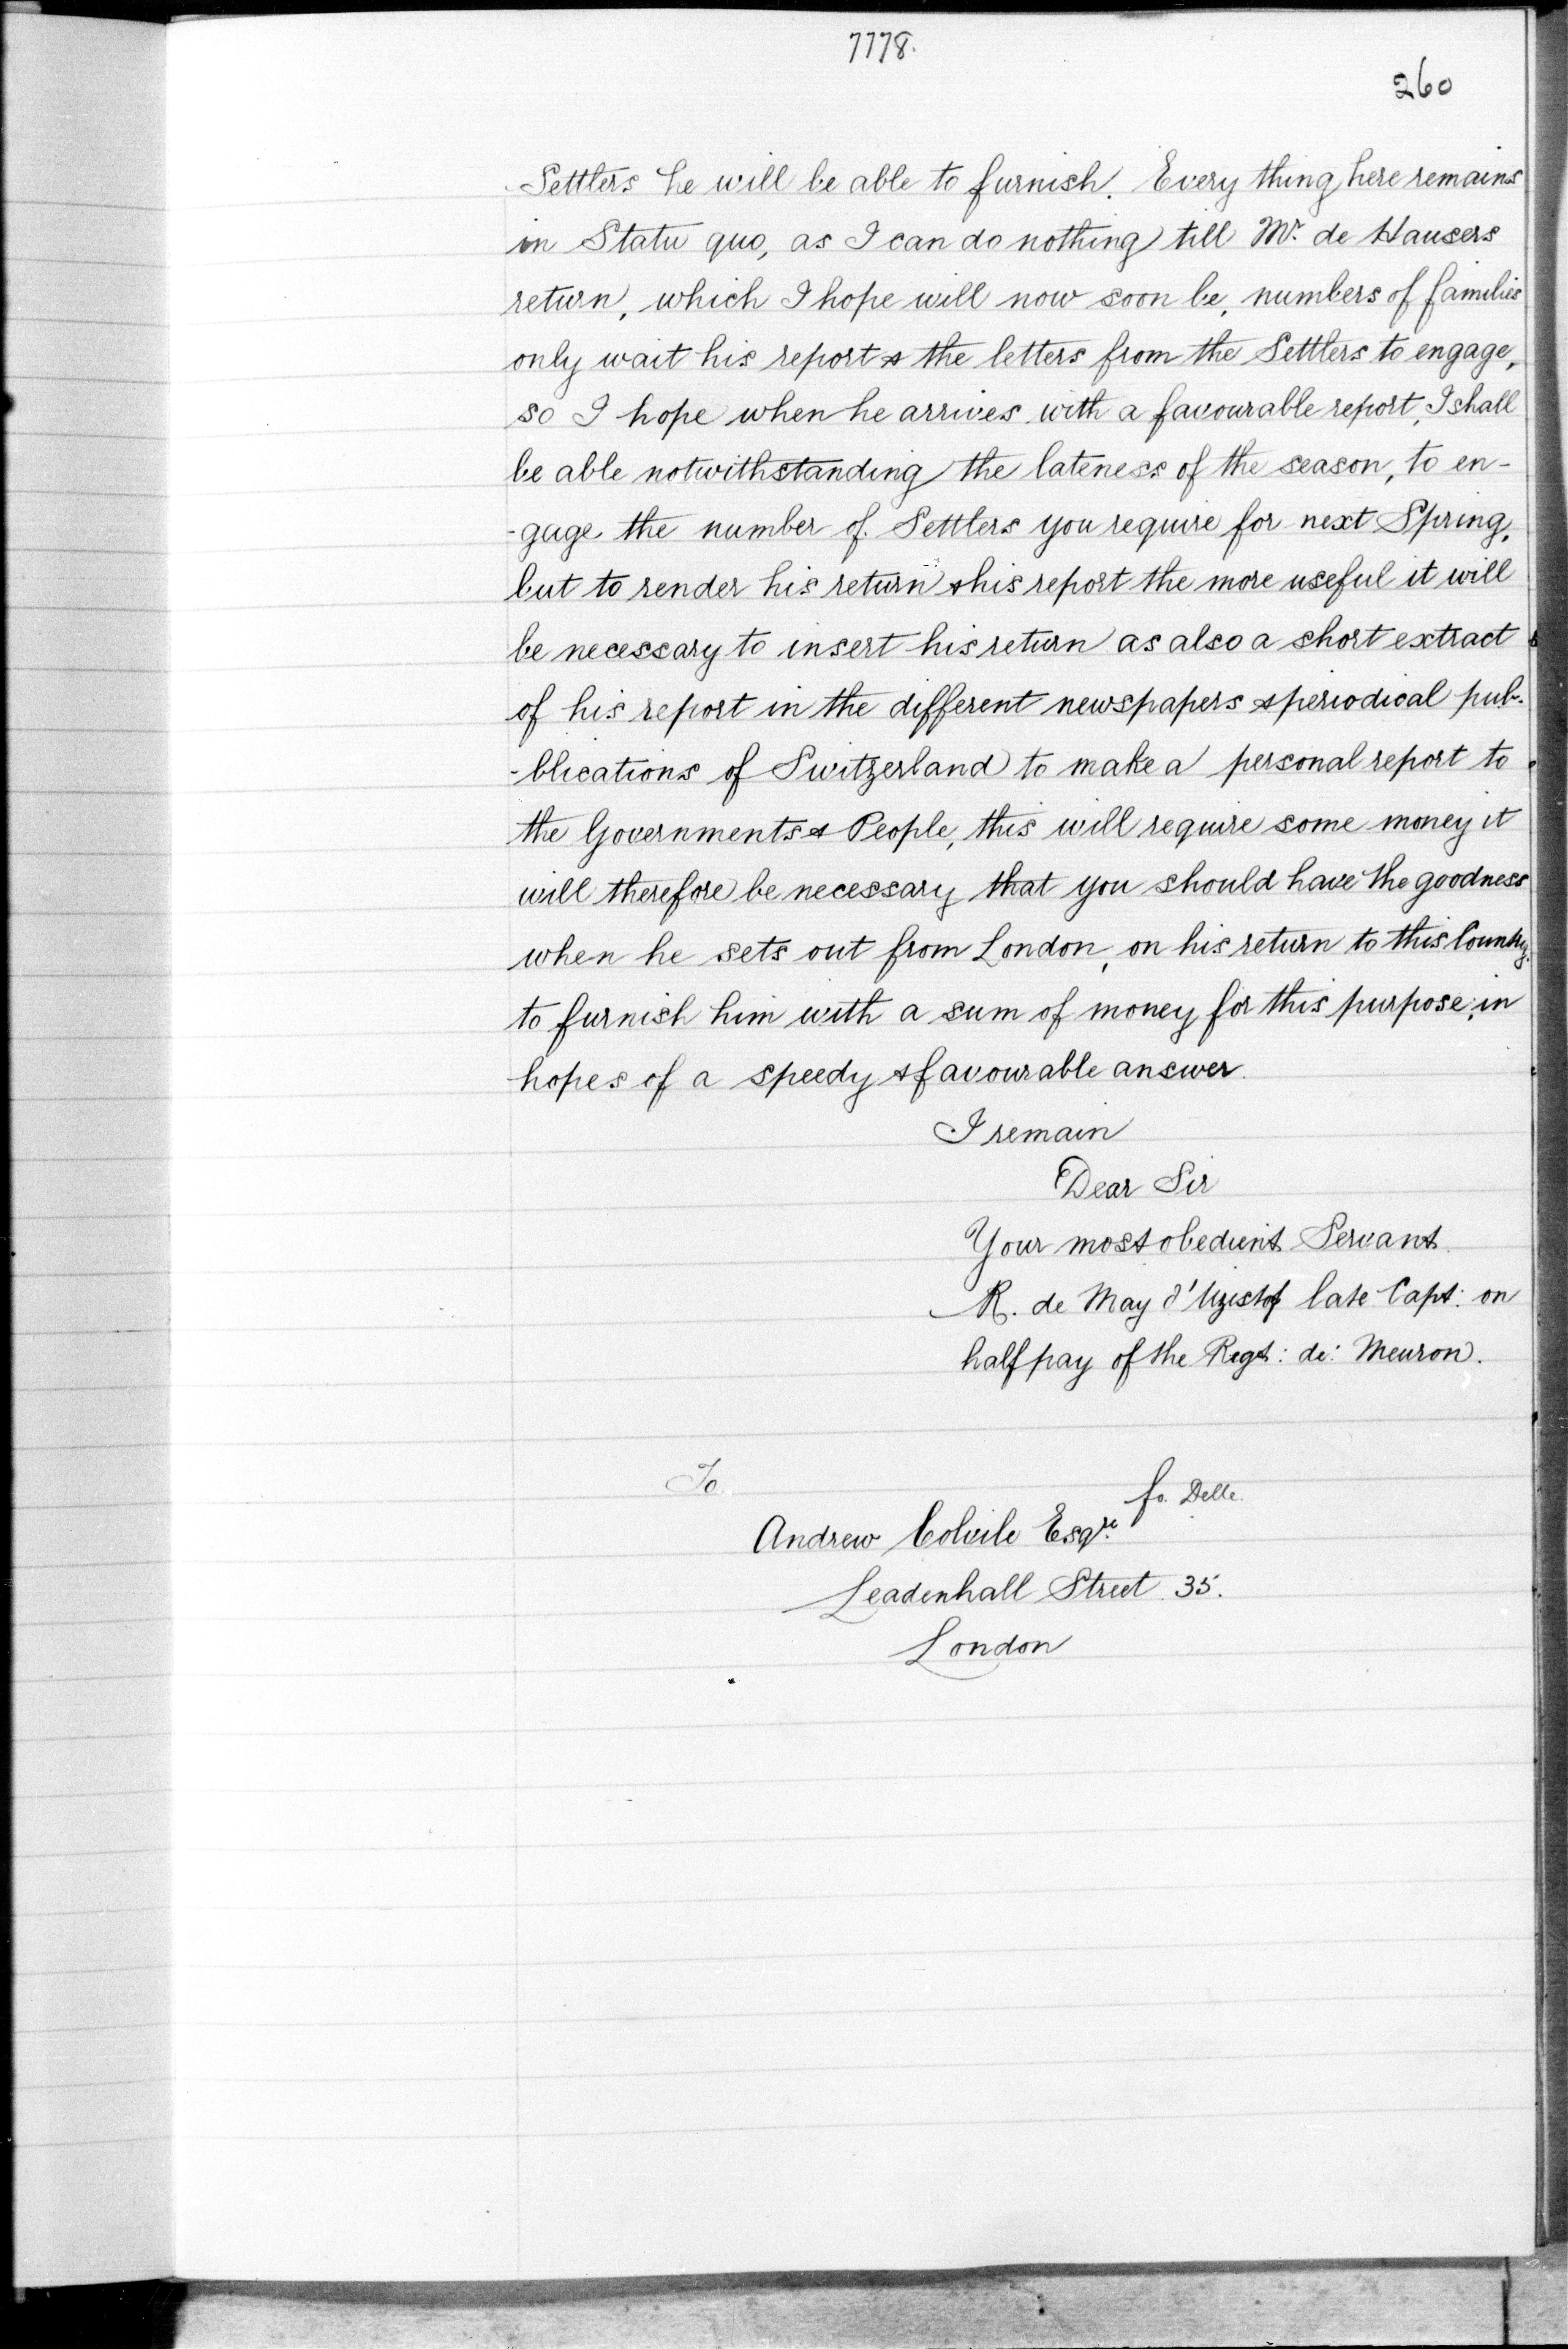 7778.
260
Settlers he will be able to furnish. Every thing here remains
in Statu quo, as I can do nothing till Mr. de Hausers
return, which I hope will now soon be, numbers of families
only wait his report & the letters from the Settlers to engage,
so I hope when he arrives with a favourable report, I shall
be able notwithstanding the lateness of the season, to en-
-gage the number of Settlers you require for next Spring,
but to render his return & his report the more useful it will
be necessary to insert his return as also a short extract
of his report in the different newspapers & periodical pub-
-blications of Switzerland to make a personal report to
the Governments & People, this will require some money it
will therefore be necessary that you should have the goodness
when he sets out from London, on his return to this Country.
to furnish him with a sum of money for this purpose; in
hopes of a speedy & favourable answer.
I remain
Dear Sir
Your most obedient Servant.
R. de May d' late Capt: on
half pay of the Regt: de: Meuron.
To
fo. Delle.
Andrew Colvile Esqre.
Leadenhall Street 35.
London